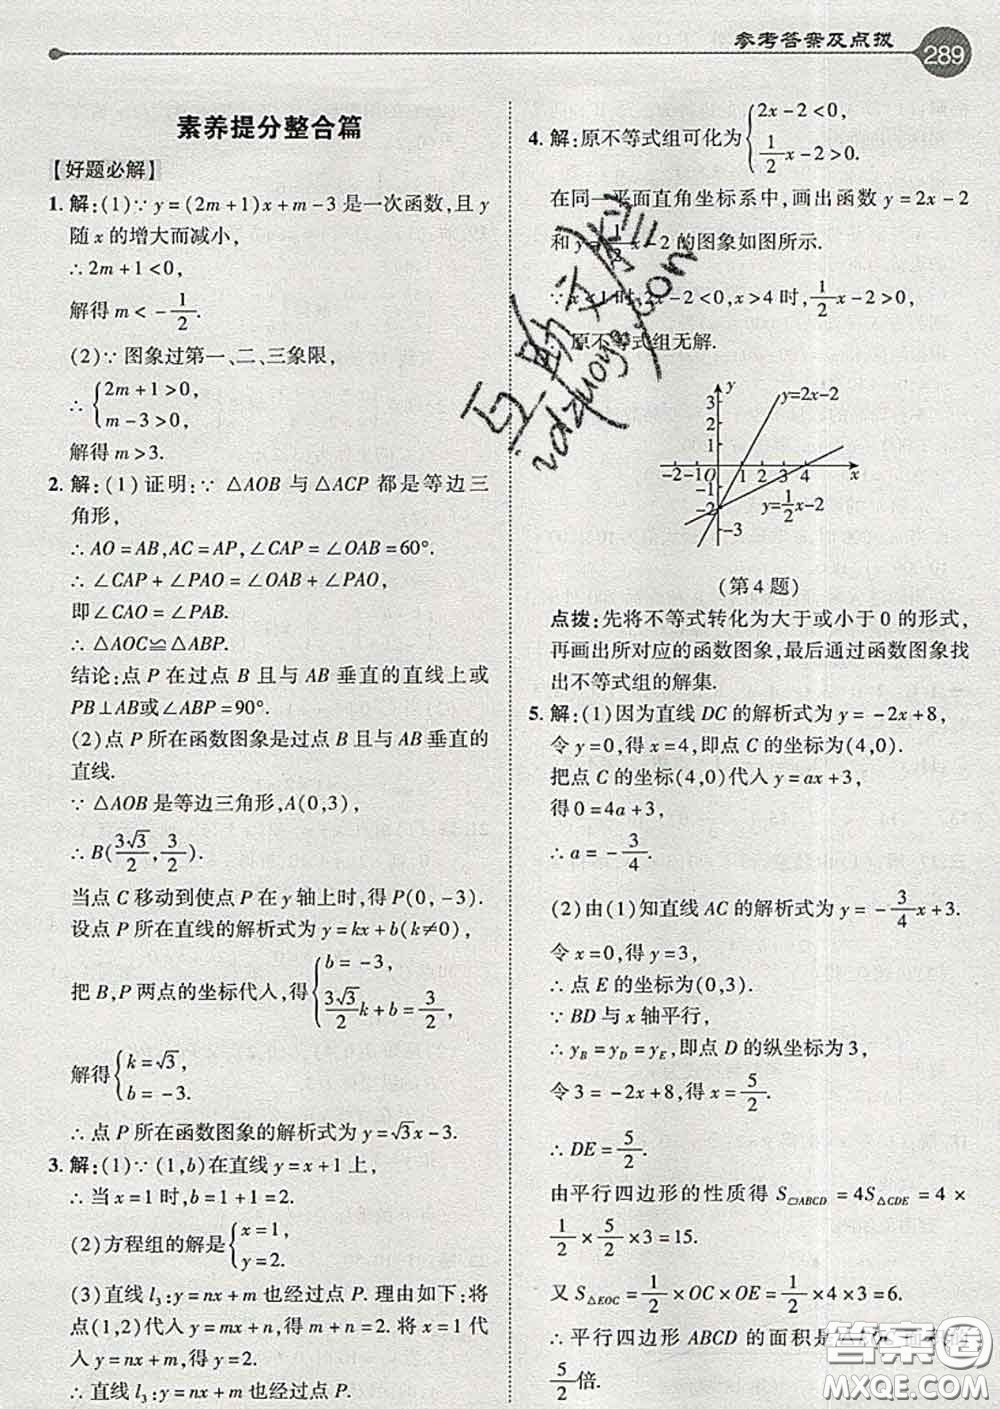 参考答案及点拨
289
素养提分整合篇
【好题必解】
1. 解:(1)∵ y=(2m+1)x+m-3 是一次函数,且 y
随 x 的增大而减小,
∴ 2m+1<0,
解得 m<-1/2.
(2)∵ 图象过第一、二、三象限,
∴ {2m+1>0,
m-3>0,
解得 m>3.
2. 解:(1)证明:∵ △AOB 与 △ACP 都是等边三
角形,
∴ AO=AB,AC=AP,∠CAP=∠OAB=60°.
∴ ∠CAP+∠PAO=∠OAB+∠PAO,
即∠CAO=∠PAB.
∴ △AOC≌△ABP.
结论:点 P 在过点 B 且与 AB 垂直的直线上或
PB⊥AB或∠ABP=90°.
(2)点 P 所在函数图象是过点 B 且与 AB 垂直的
直线.
∵ △AOB 是等边三角形,A(0,3),
∴ B(3√3/2,3/2).
当点 C 移动到使点 P 在 y 轴上时,得 P(0,-3).
设点 P 所在直线的解析式为 y=kx+b(k≠0),
把 B,P 两点的坐标代人,得{b=-3,
3√3/2k+b=3/2,
解得{k=√3,
b=-3.
∴ 点 P 所在函数图象的解析式为 y=√3x-3.
3. 解:(1)∵ (1,b)在直线 y=x+1 上,
∴ 当 x=1 时,b=1+1=2.
(2)方程组的解是{x=1,
y=2.
(3)直线 l₃:y=nx+m 也经过点 P. 理由如下:将
点(1,2)代人 y=mx+n,得 m+n=2. 将 x=1
代人 y=nx+m,得 y=n+m=2.
∴ 直线 l₃:y=nx+m 也经过点 P.
4. 解:原不等式组可化为{2x-2<0,
1/2x-2>0.
在同一平面直角坐标系中,画出函数 y=2x-2
和 y=1/2x-2 的图象如图所示.
∵ x<1 时,2x-2<0,x>4 时,1/2x-2>0,
原不等式组无解.
y
y=2x-2
3
2
1
-2-1O 1 2 3 4 x
-1
-2
-3
y=1/2x-2
(第 4 题)
点拨:先将不等式转化为大于或小于 0 的形式,
再画出所对应的函数图象,最后通过函数图象找
出不等式组的解集.
5. 解:(1)因为直线 DC 的解析式为 y=-2x+8,
令 y=0,得 x=4,即点 C 的坐标为(4,0).
把点 C 的坐标(4,0)代人 y=ax+3,
得 0=4a+3,
∴ a=-3/4.
(2)由(1)知直线 AC 的解析式为 y=-3/4x+3.
令 x=0,得 y=3,
∴ 点 E 的坐标为(0,3).
∵ BD 与 x 轴平行,
∴ y_B=y_D=y_E,即点 D 的纵坐标为 3,
令 3=-2x+8,得 x=5/2.
∴ DE=5/2.
由平行四边形的性质得 S▱ABCD=4S△CDE=4×
1/2×5/2×3=15.
又 S△EOC=1/2×OC×OE=1/2×4×3=6.
∴ 平行四边形 ABCD 的面积是
5/2倍.
互助文库
idzuoye.com
答案圈
MXQE.COM